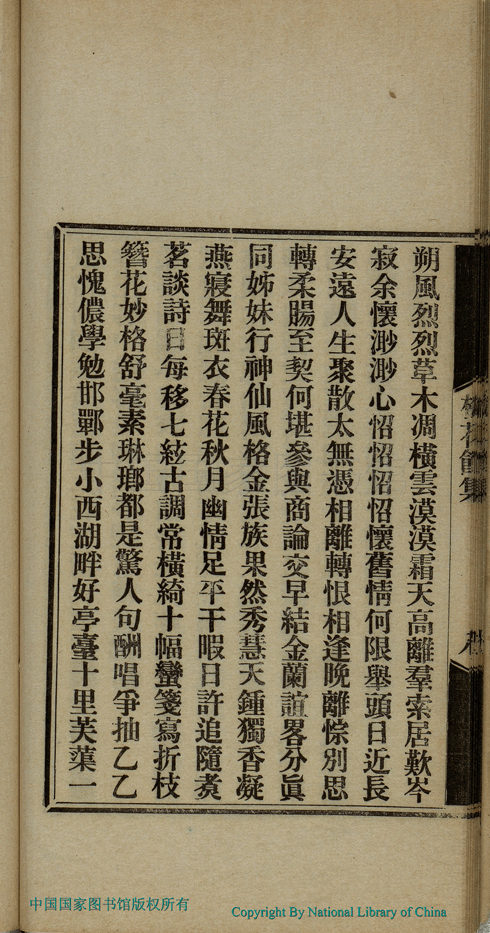 朔風烈烈草木凋橫雲漠漠霜天高離羣索居歎岑
寂余懷渺渺心怊怊怊怊懷舊情何限舉頭日近長
安遠人生聚散太無憑相離轉恨相逢晚離悰別思
轉柔腸至契何堪參與商論交早結金蘭誼畧分眞
同姊妹行神仙風格金張族果然秀慧天鍾獨香凝
燕寢舞斑衣春花秋月幽情足平干暇日許追隨煑
茗談詩日每移七絃古調常橫綺十幅蠻箋寫折枝
簪花妙格舒毫素琳瑯都是驚人句酬唱爭抽乙乙
思愧儂學勉邯鄲步小西湖畔好亭臺十里芙蕖一
花餘集
中国国家图书馆版权所有
Copyright By National Library of China